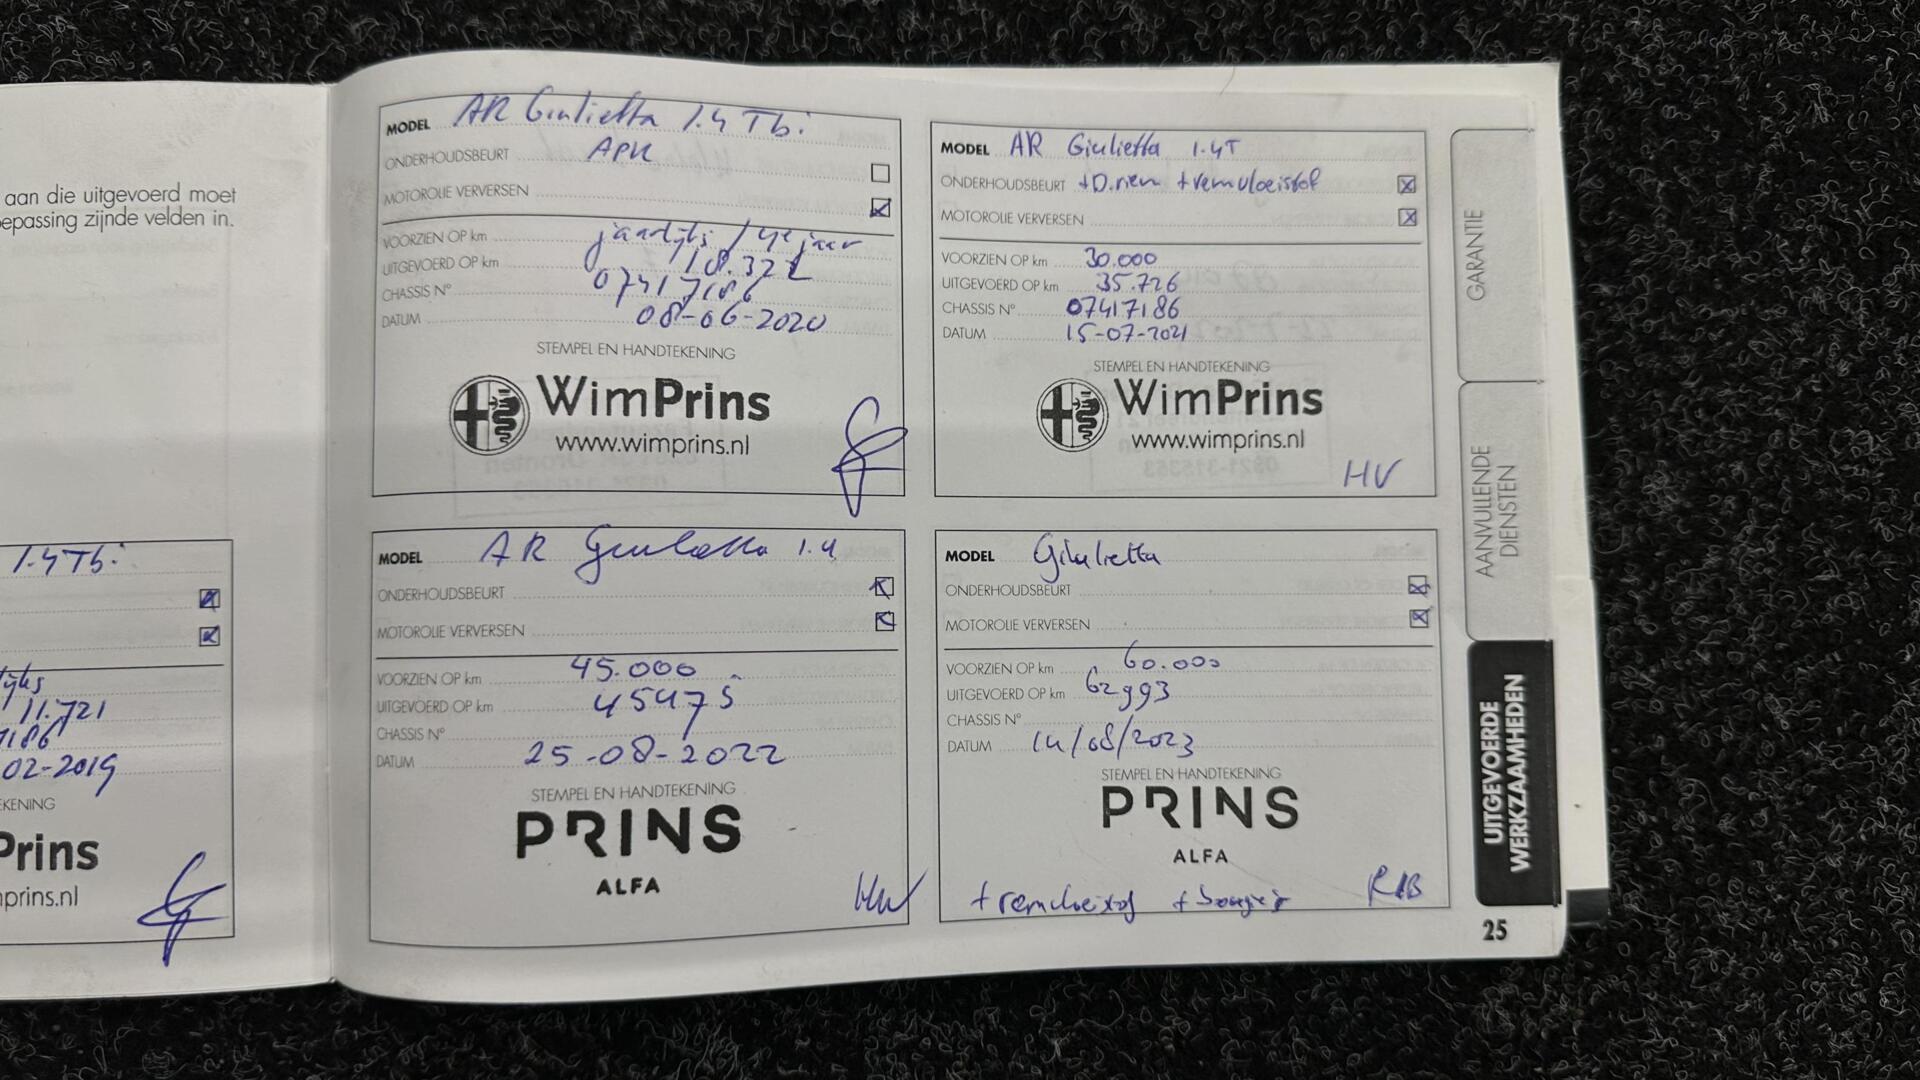 aan die uitgevoerd moet
epassing zijnde velden in.
1.4 Tb.
11.721
7186
02-2019
KENING
Prins
mprins.nl
MODEL AR Giulietta 1.4 Tb.
ONDERHOUDSBEURT APK
MOTOROLIE VERVERSEN
VOORZIEN OP km jaarlijks / 4e jaar
UITGEVOERD OP km 18.322
CHASSIS N° 07417186
DATUM 08-06-2020
STEMPEL EN HANDTEKENING
WimPrins
www.wimprins.nl
MODEL AR Giulietta 1.4T
ONDERHOUDSBEURT +D.riem +remvloeistof
MOTOROLIE VERVERSEN
VOORZIEN OP km 30.000
UITGEVOERD OP km 35.726
CHASSIS N° 07417186
DATUM 15-07-2021
STEMPEL EN HANDTEKENING
WimPrins
www.wimprins.nl
HV
MODEL AR Giulietta 1.4
ONDERHOUDSBEURT
MOTOROLIE VERVERSEN
VOORZIEN OP km 45.000
UITGEVOERD OP km 45475
CHASSIS N°
DATUM 25-08-2022
STEMPEL EN HANDTEKENING
PRINS
ALFA
MODEL Giulietta
ONDERHOUDSBEURT
MOTOROLIE VERVERSEN
VOORZIEN OP km 60.000
UITGEVOERD OP km 62993
CHASSIS N°
DATUM 14/08/2023
STEMPEL EN HANDTEKENING
PRINS
ALFA
+ remvloeistof + bougies RAB
GARANTIE
AANVULLENDE
DIENSTEN
UITGEVOERDE
WERKZAAMHEDEN
25